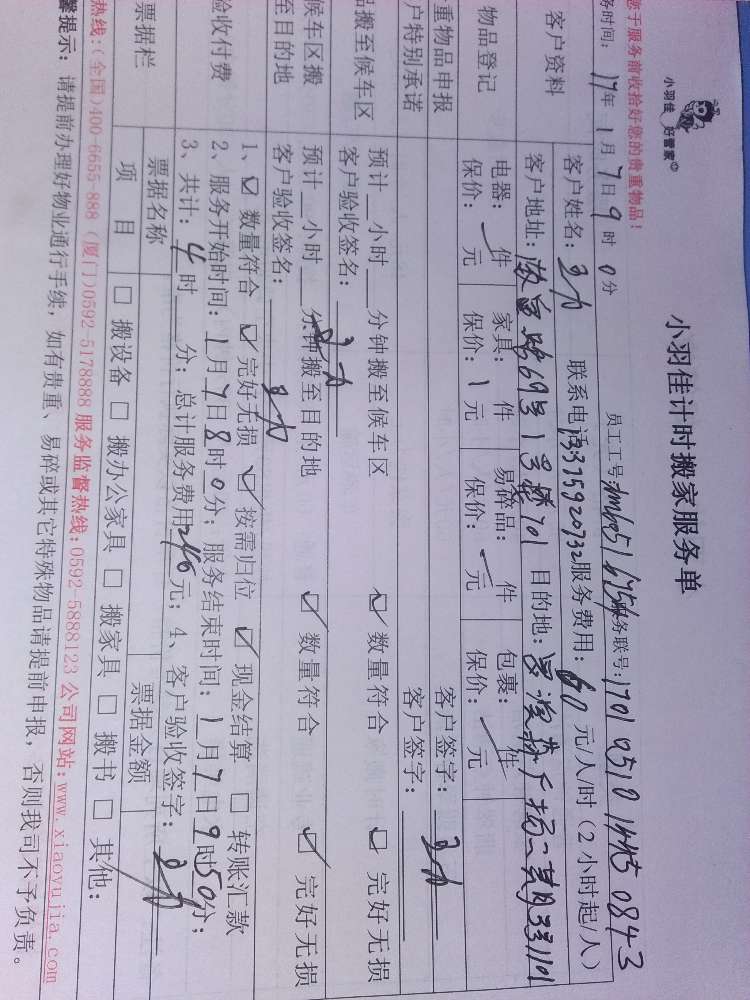 小羽佳 好管家
小羽佳计时搬家服务单
您于服务前收拾好您的贵重物品!
员工工号: 服务联号:
务时间: 17年1月7日9时0分
客户资料 客户姓名: 联系电话: 13375920732 服务费用: 60元/人/时(2小时起/人)
客户地址: 目的地:
物品登记 电器: 件 家具: 件 易碎品: 件 包裹: 件
保价: 元 保价: 1元 保价: 元 保价: 元
重物品申报 客户签字:
户特别承诺 客户签字:
品搬至候车区 预计 小时 分钟搬至候车区 数量符合 完好无损
客户验收签名:
候车区搬至目的地 预计 小时 分钟搬至目的地 数量符合 完好无损
客户验收签名:
验收付费 1、数量符合 完好无损 按需归位 现金结算 转账汇款
2、服务开始时间: 1月7日8时0分; 服务结束时间: 1月7日9时50分;
3、共计: 4时 分; 总计服务费用 元; 4、客户验收签字:
票据栏 票据名称 票据金额
项目 搬设备 搬办公家具 搬家具 搬书 其他:
热线:(全国)400-6655-888 (厦门)0592-5178888 服务监督热线:0592-5888123 公司网站:www.xiaoyujia.com
馨提示: 请提前办理好物业通行手续, 如有贵重、易碎或其它特殊物品请提前申报, 否则我司不予负责。